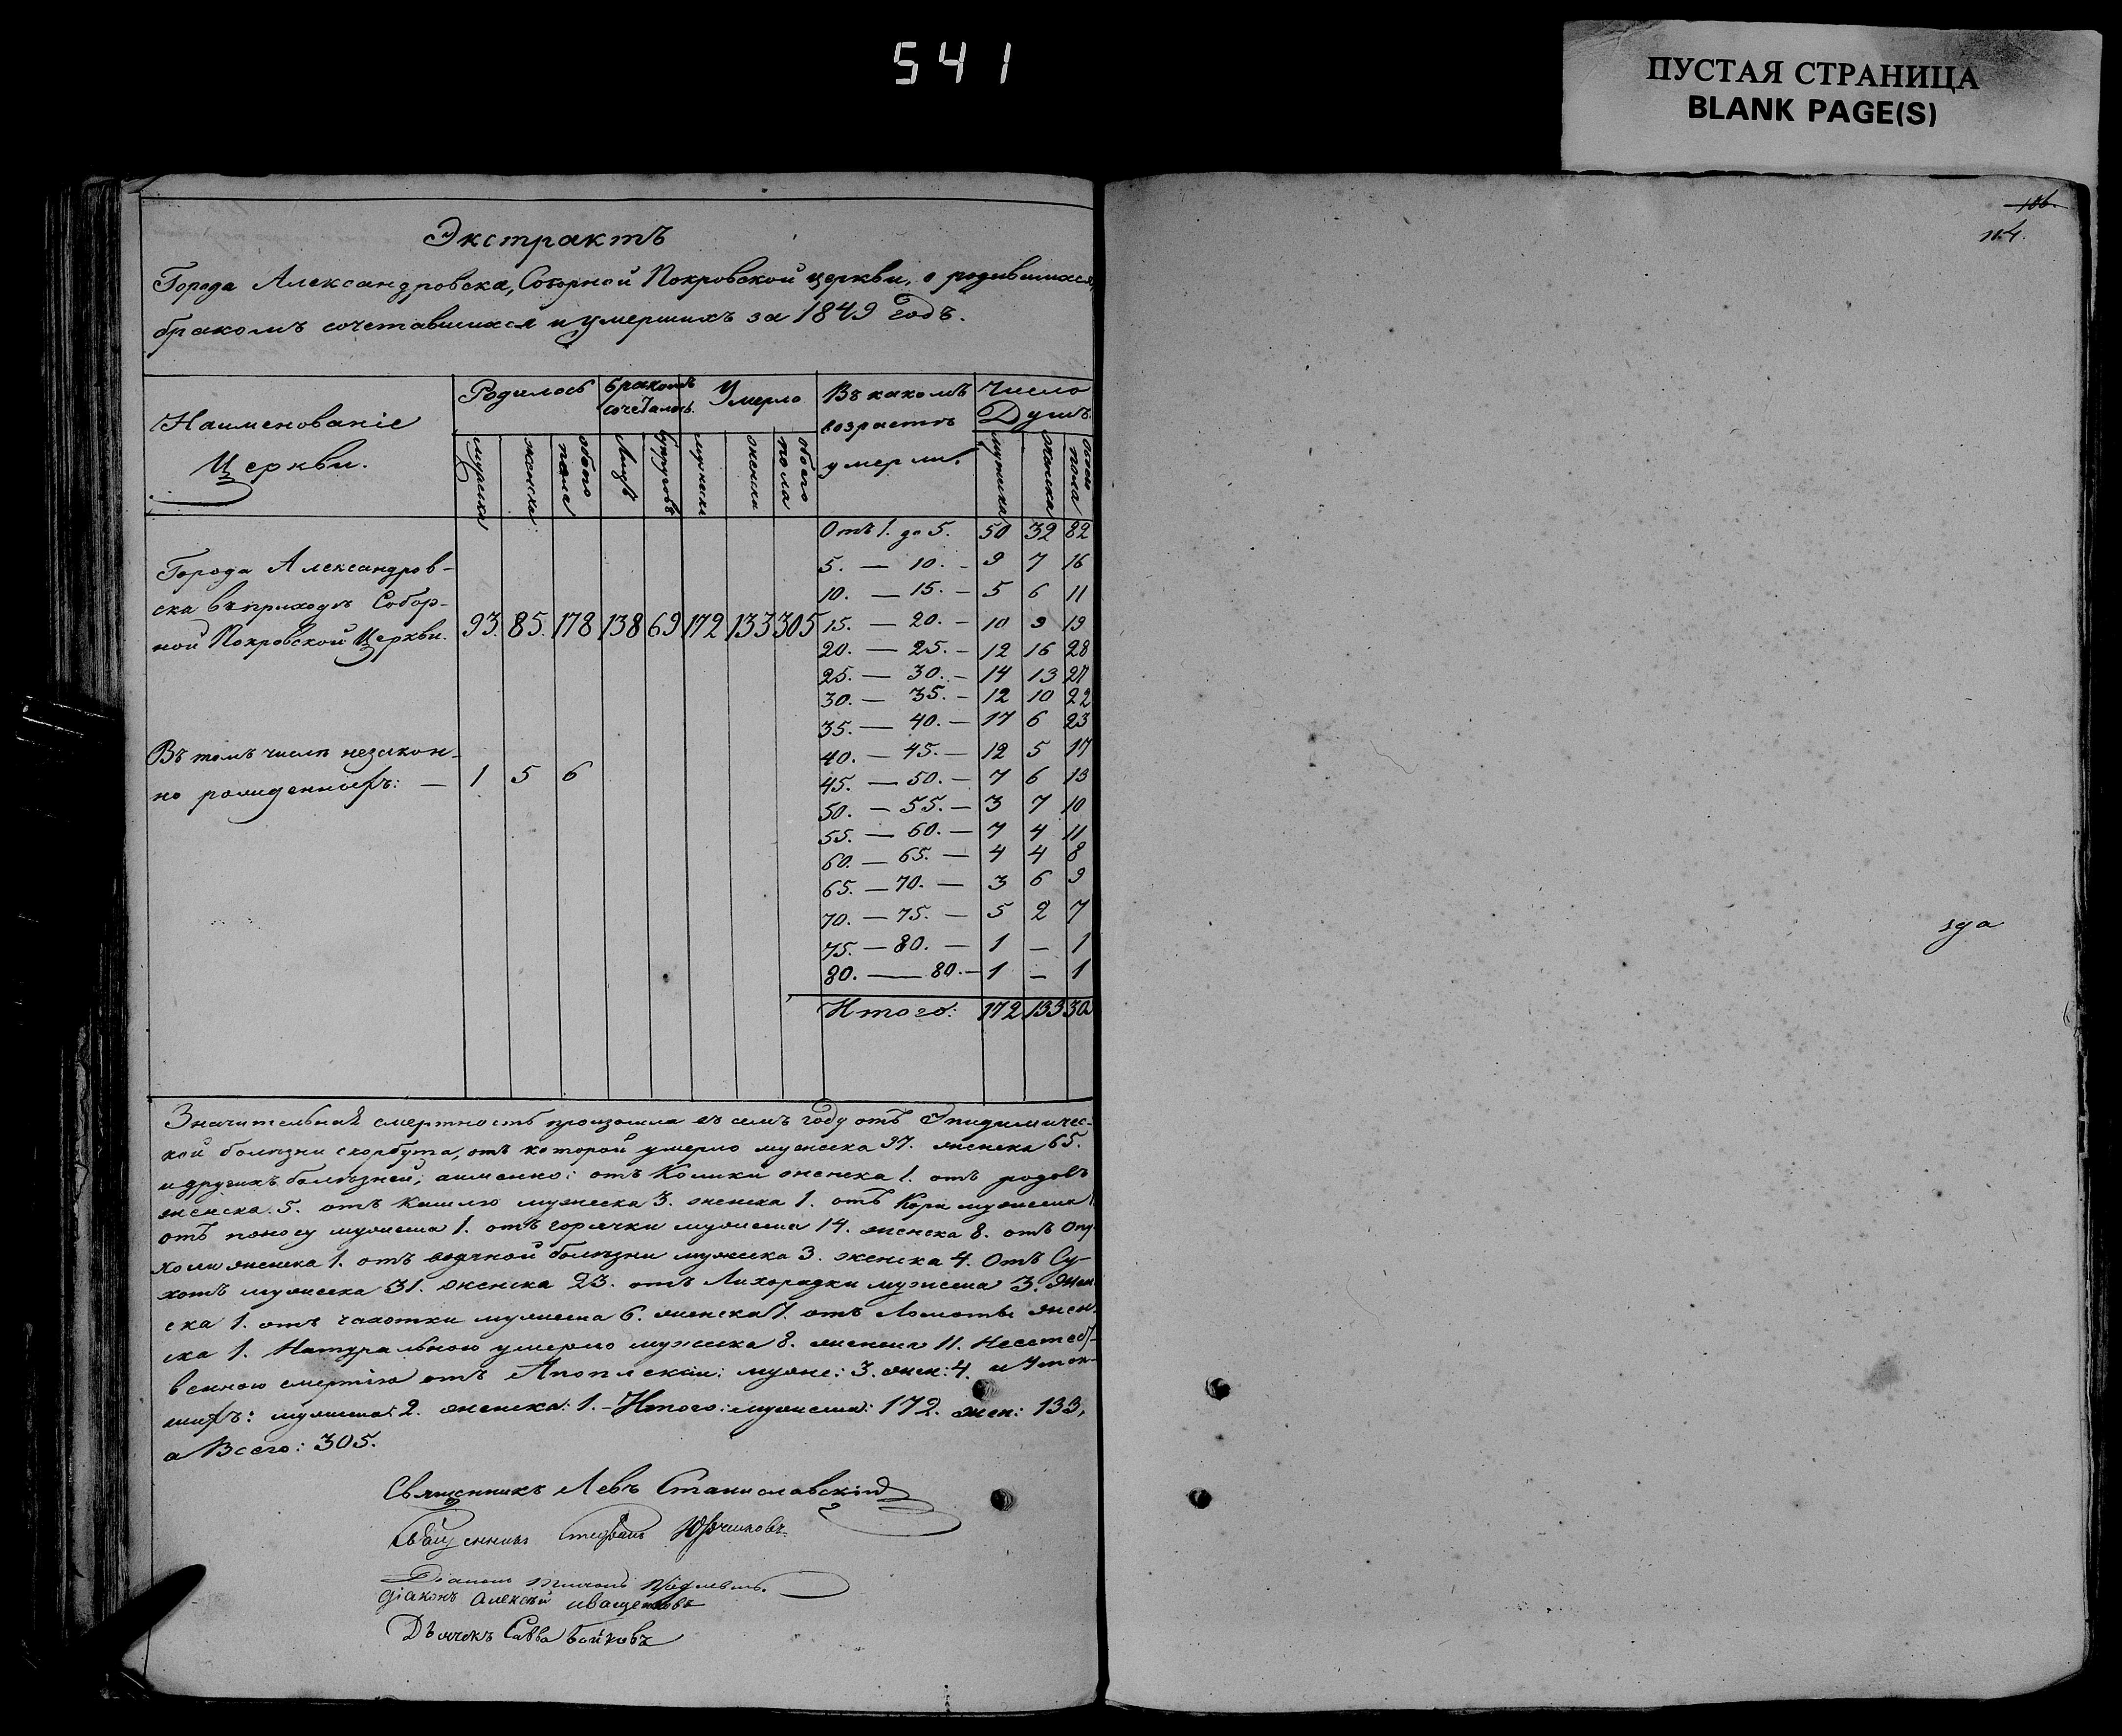 541
ПУСТАЯ СТРАНИЦА
BLANK PAGE(S)
186.
114.
Экстрактъ
Города Александровска, Соборной Покровской церкви, о родившихся,
бракомъ сочетавшихся и умершихъ за 1849 годъ.
Наименованіе Церкви.
Родилось
бракомъ сочеталось.
Умерло
Въ какомъ возрастѣ умерли.
Число Душъ.
мужска
женска
обоего пола
Лицъ
супруговъ
мужска
женска
обоего пола
мужска
женска
обоего пола
Города Александров-
ска въ приходѣ Собор-
ной Покровской Церкви. 93. 85. 178 138 69 172 133 305
Въ томъ числѣ незакон-
но рожденныхъ: — 1 5 6
Отъ 1. до 5. 50 32 82
5. — 10. — 9 7 16
10. — 15. — 5 6 11
15. — 20. — 10 9 19
20. — 25. — 12 16 28
25. — 30. — 14 13 27
30. — 35. — 12 10 22
35. — 40. — 17 6 23
40. — 45. — 12 5 17
45. — 50. — 7 6 13
50. — 55. — 3 7 10
55. — 60. — 7 4 11
60. — 65. — 4 4 8
65. — 70. — 3 6 9
70. — 75. — 5 2 7
75. — 80. — 1 — 1
80. — 80. — 1 — 1
Итого: 172 133 305
Значительная смертность произошла въ семъ году отъ Эпидимичес-
кой болѣзни скорбута, отъ которой умерло мужеска 97. женска 65.
и другихъ болѣзней, а именно: отъ Колики женска 1. отъ родовъ
женска. 5. отъ кашлю мужеска 3. женска 1. отъ Кори мужеска 1
отъ поносу мужеска 1. отъ горячки мужеска 14. женска 8. отъ Опу-
холи женска 1. отъ водяной болѣзни мужеска 3. женска 4. Отъ Су-
хотъ мужеска 31. женска 23. отъ Лихорадки мужеска 3. жен
ска 1. отъ чахотки мужеска 6. женска 7. отъ Ломоты жен-
ска 1. Натуральною умерло мужеска 8. женска 11. Неестест-
венною смертію отъ Апоплексіи: муже: 3. жен: 4. и Утоп-
шихъ: мужеска: 2. женска: 1. – Итого: мужеска: 172. жен: 133,
а Всего: 305.
Священникъ Левъ Станиславскій
Священникъ Стефанъ
Діаконъ
Діаконъ Алексѣй Иващенковъ
Дьячекъ Савва Бойковъ